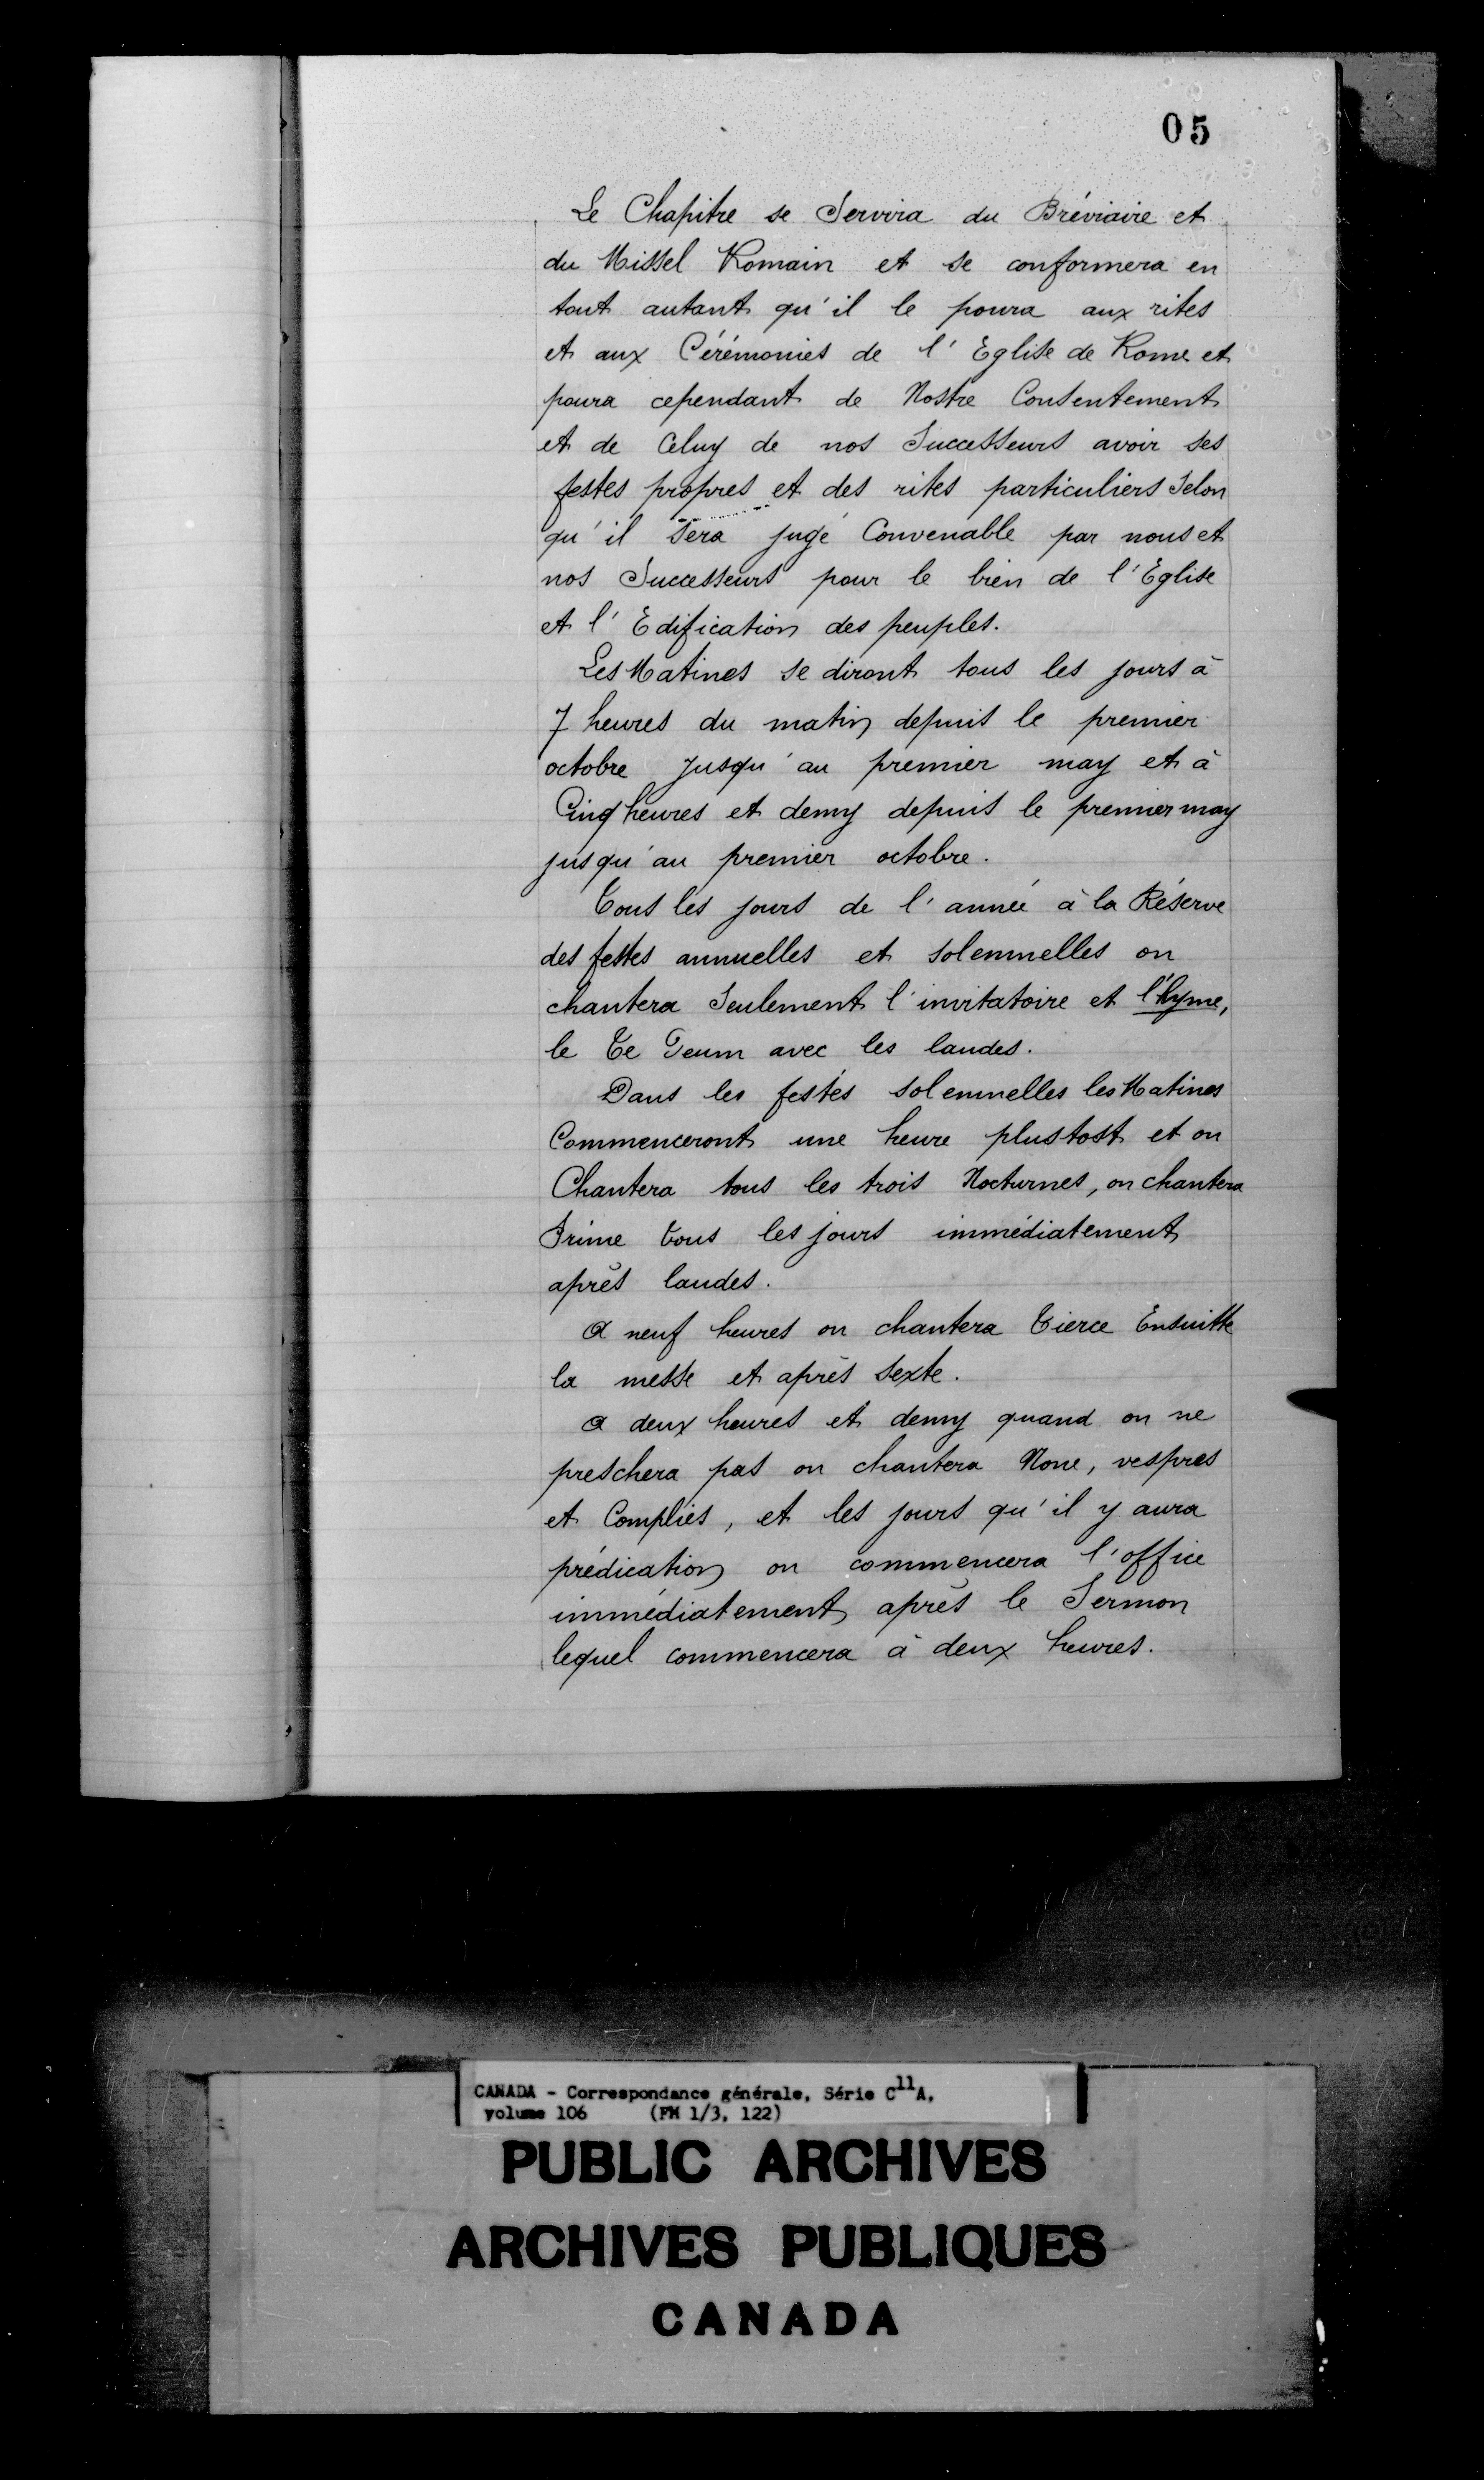 05
Le Chapitre se Servira du Bréviaire et
du Missel Romain et se conformera en
tout autant qu'il le poura aux rites
et aux Cérémonies de l'Eglise de Rome et
poura cependant de Nostre Consentement
et de Celuy de nos Successeurs avoir ses
festes propres et des rites particuliers Selon
qu'il Sera jugé Convenable par nous et
nos Successeurs pour le bien de l'Eglise
et l'Edification des peuples.
Les Matines se diront tous les jours à
7 heures du matin depuis le premier
octobre jusqu'au premier may et à
Cinq heures et demy depuis le premier may
jusqu'au premier octobre.
Tous les jours de l'année à la Réserve
des festes annuelles et solemnelles on
chantera Seulement l'invitatoire et l'hyme,
le Te Deum avec les laudes.
Dans les festes solemnelles les Matines
Commenceront une heure plustost et on
Chantera tous les trois Nocturnes, on chantera
Prime tous les jours immédiatement
après laudes.
A neuf heures on chantera Tierce Ensuitte
la messe et après sexte.
A deux heures et demy quand on ne
preschera pas on chantera None, vespres
et Complies, et les jours qu'il y aura
prédication on commencera l'office
immédiatement après le Sermon
lequel commencera à deux heures.
CANADA - Correspondance générale, Série C11A,
volume 106 (FM 1/3, 122)
PUBLIC ARCHIVES
ARCHIVES PUBLIQUES
CANADA